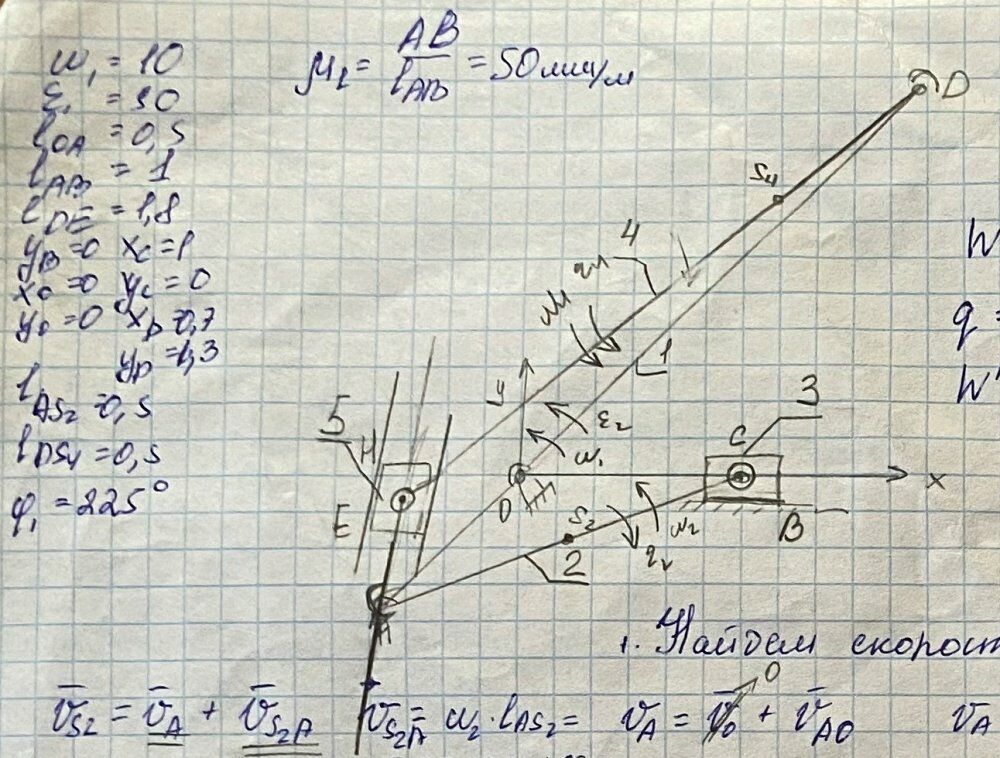 ω₁ = 10
ε₁ = 30
l_OA = 0,5
l_AB = 1
l_DE = 1,8
y_B = 0 x_C = 1
x_0 = 0 y_C = 0
y_0 = 0 x_D = 0,7
y_D = 1,3
l_AS₂ = 0,5
l_DS4 = 0,5
φ₁ = 225°
μ_l = AB / l_AB = 50 мм/м
D
S4
4
1
y
ε₂
ω₁
5
H
E
3
C
x
O
S₂
B
ω₂
2
A
W
q =
W
1. Найдем скорост
v̄_S2 = v̄_A + v̄_S₂A v̄_S₂A = ω₂ · l_AS₂ = v̄_A = v̄_0 + v̄_AO v̄_A
0